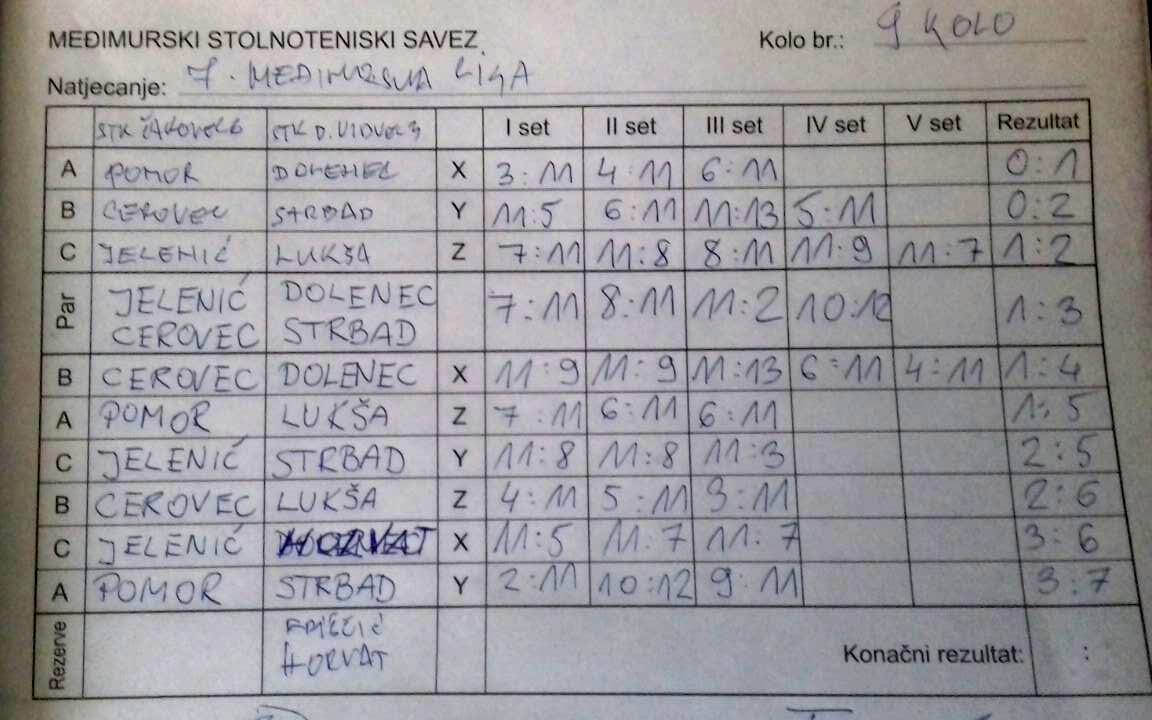 MEĐIMURSKI STOLNOTENISKI SAVEZ Kolo br.: 9 KOLO
Natjecanje: 7. MEĐIMURSKA LIGA
STK ČAKOVEC 6 STK D. VIDOVEC 3 I set II set III set IV set V set Rezultat
A POMOR DOLENEC X 3:11 4:11 6:11 0:1
B CEROVEC STRBAD Y 11:5 6:11 11:13 5:11 0:2
C JELENIĆ LUKŠA Z 7:11 11:8 8:11 11:9 11:7 1:2
Par JELENIĆ DOLENEC 7:11 8:11 11:2 10:12 1:3
CEROVEC STRBAD
B CEROVEC DOLENEC X 11:9 11:9 11:13 6:11 4:11 1:4
A POMOR LUKŠA Z 7:11 6:11 6:11 1:5
C JELENIĆ STRBAD Y 11:8 11:8 11:3 2:5
B CEROVEC LUKŠA Z 4:11 5:11 3:11 2:6
C JELENIĆ HORVAT X 11:5 11:7 11:7 3:6
A POMOR STRBAD Y 2:11 10:12 9:11 3:7
Rezerve
HORVAT
Konačni rezultat: :